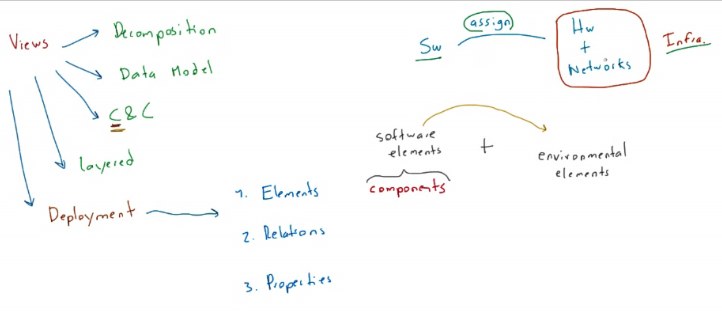 Views
Decomposition
Data Model
C&C
layered
Deployment
1. Elements
2. Relations
3. Properties
Sw
assign
Hw
+
Networks
Infra.
software
elements
+
environmental
elements
components